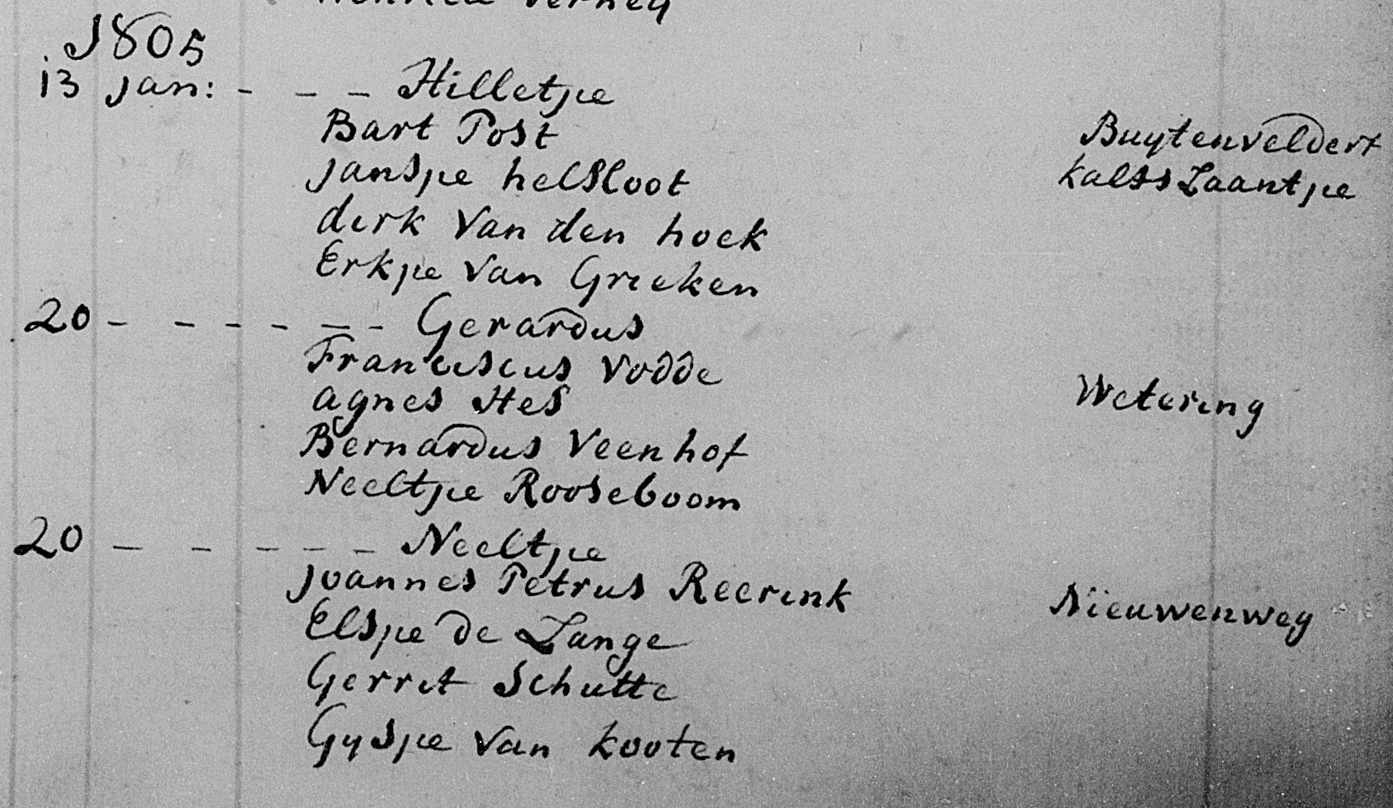 Verhey
1805
13 jan: - - - Hilletje
Bart Post Buytenveldert
Jansje helsloot kalfs Laantje
dirk Van den hoek
Erkje Van Grieken
20 - - - - - - Gerardus
Franciscus Vodde
agnes Hes Wetering
Bernardus Veenhof
Neeltje Rooseboom
20 - - - - - - Neeltje
Joannes Petrus Reerink Nieuwenweg
Elsje de Lange
Gerrit Schutte
Gysje Van kooten